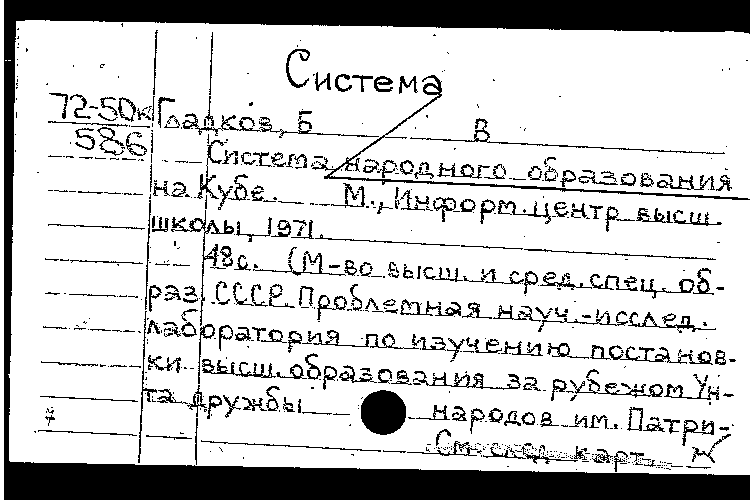 Система
72-50к Гладков, Б В
586 Система народного образования
на Кубе. М., Информ. центр высш.
школы, 1971.
48с. (М-во высш. и сред. спец. об-
раз. СССР. Проблемная науч.-исслед.
лаборатория по изучению постанов-
ки высш. образования за рубежом Ун-
та дружбы народов им. Патри-
См. след. карт.